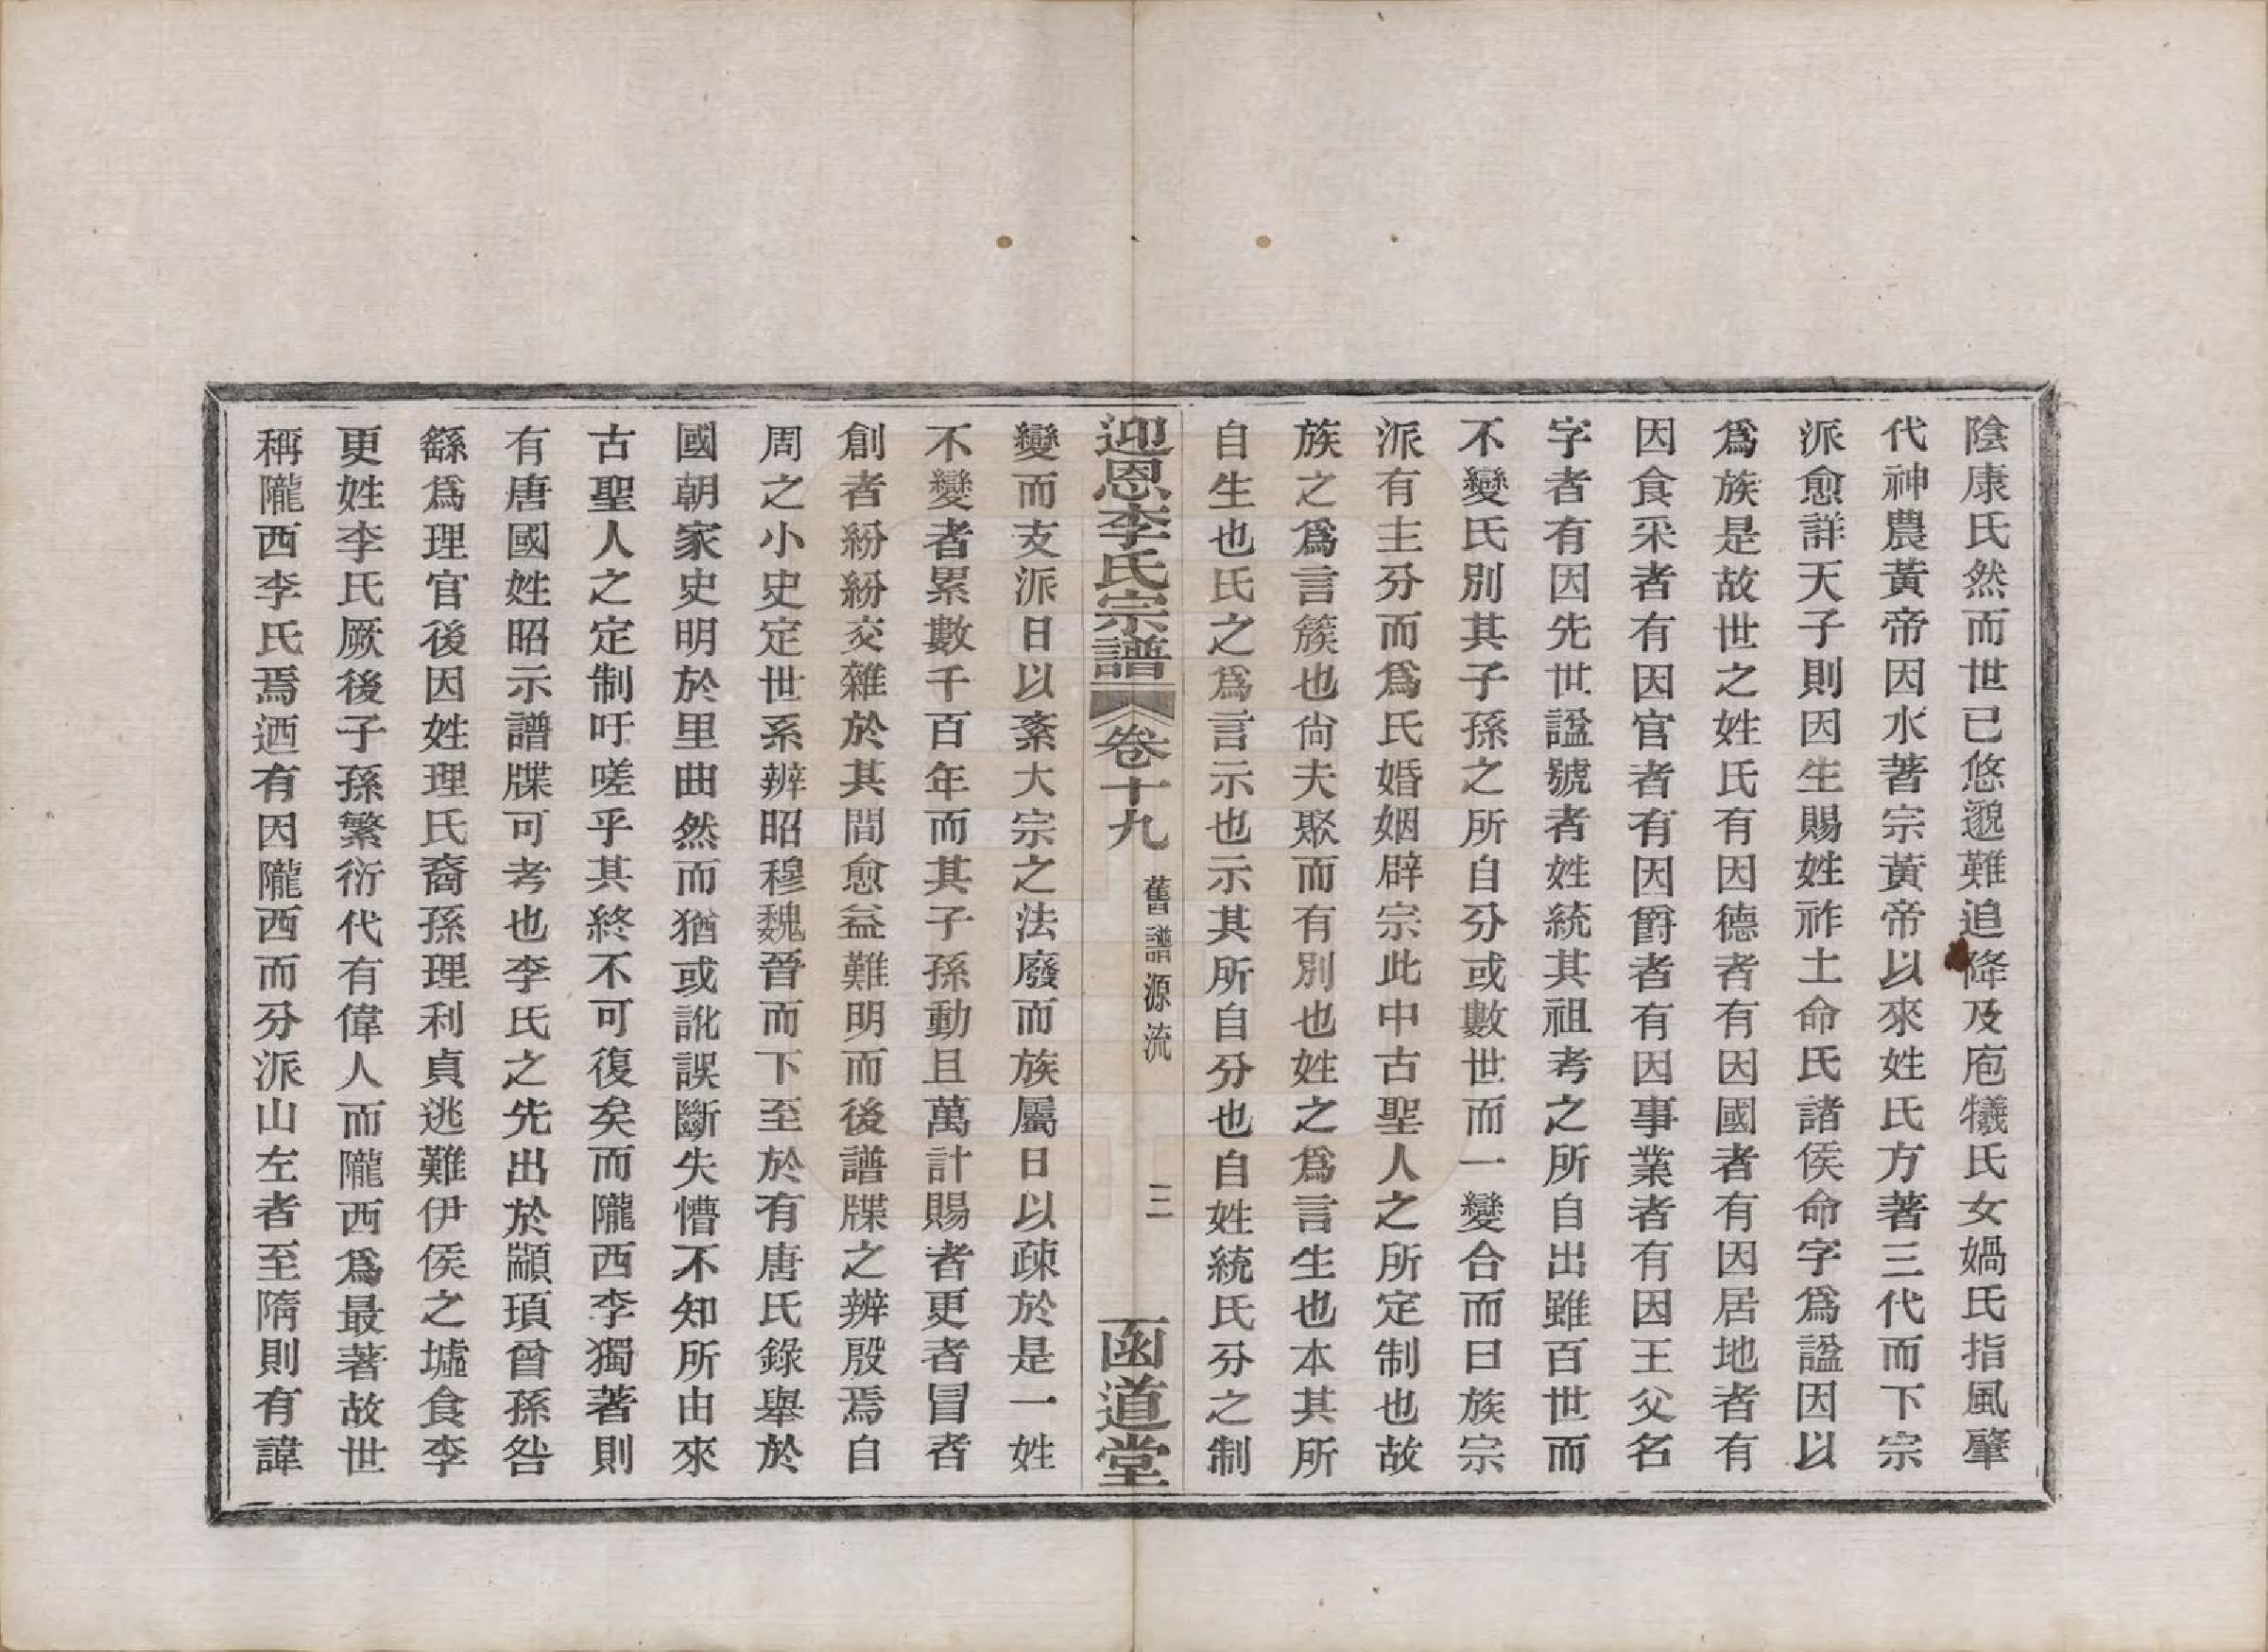 陰康氏然而世已悠邈難追降及庖犧氏女媧氏指風肇
代神農黃帝因水著宗黃帝以來姓氏方著三代而下宗
派愈詳天子則因生賜姓祚土命氏諸侯命字爲諡因以
爲族是故世之姓氏有因德者有因國者有因居地者有
因食采者有因官者有因爵者有因事業者有因王父名
字者有因先世諡號者姓統其祖考之所自出雖百世而
不變氏別其子孫之所自分或數世而一變合而曰族宗
派有主分而爲氏婚姻辟宗此中古聖人之所定制也故
族之爲言簇也尙夫聚而有別也姓之爲言生也本其所
自生也氏之爲言示也示其所自分也自姓統氏分之制
迎恩李氏宗譜 卷十九 舊譜源流 三 函道堂
變而支派日以紊大宗之法廢而族屬日以疎於是一姓
不變者累數千百年而其子孫動且萬計賜者更者冒者
創者紛紛交雜於其間愈益難明而後譜牒之辨殷焉自
周之小史定世系辨昭穆魏晉而下至於有唐氏錄舉於
國朝家史明於里曲然而猶或訛誤斷失懵不知所由來
古聖人之定制吁嗟乎其終不可復矣而隴西李獨著則
有唐國姓昭示譜牒可考也李氏之先出於顓頊曾孫咎
繇爲理官後因姓理氏裔孫理利貞逃難伊侯之墟食李
更姓李氏厥後子孫繁衍代有偉人而隴西爲最著故世
稱隴西李氏焉迺有因隴西而分派山左者至隋則有諱